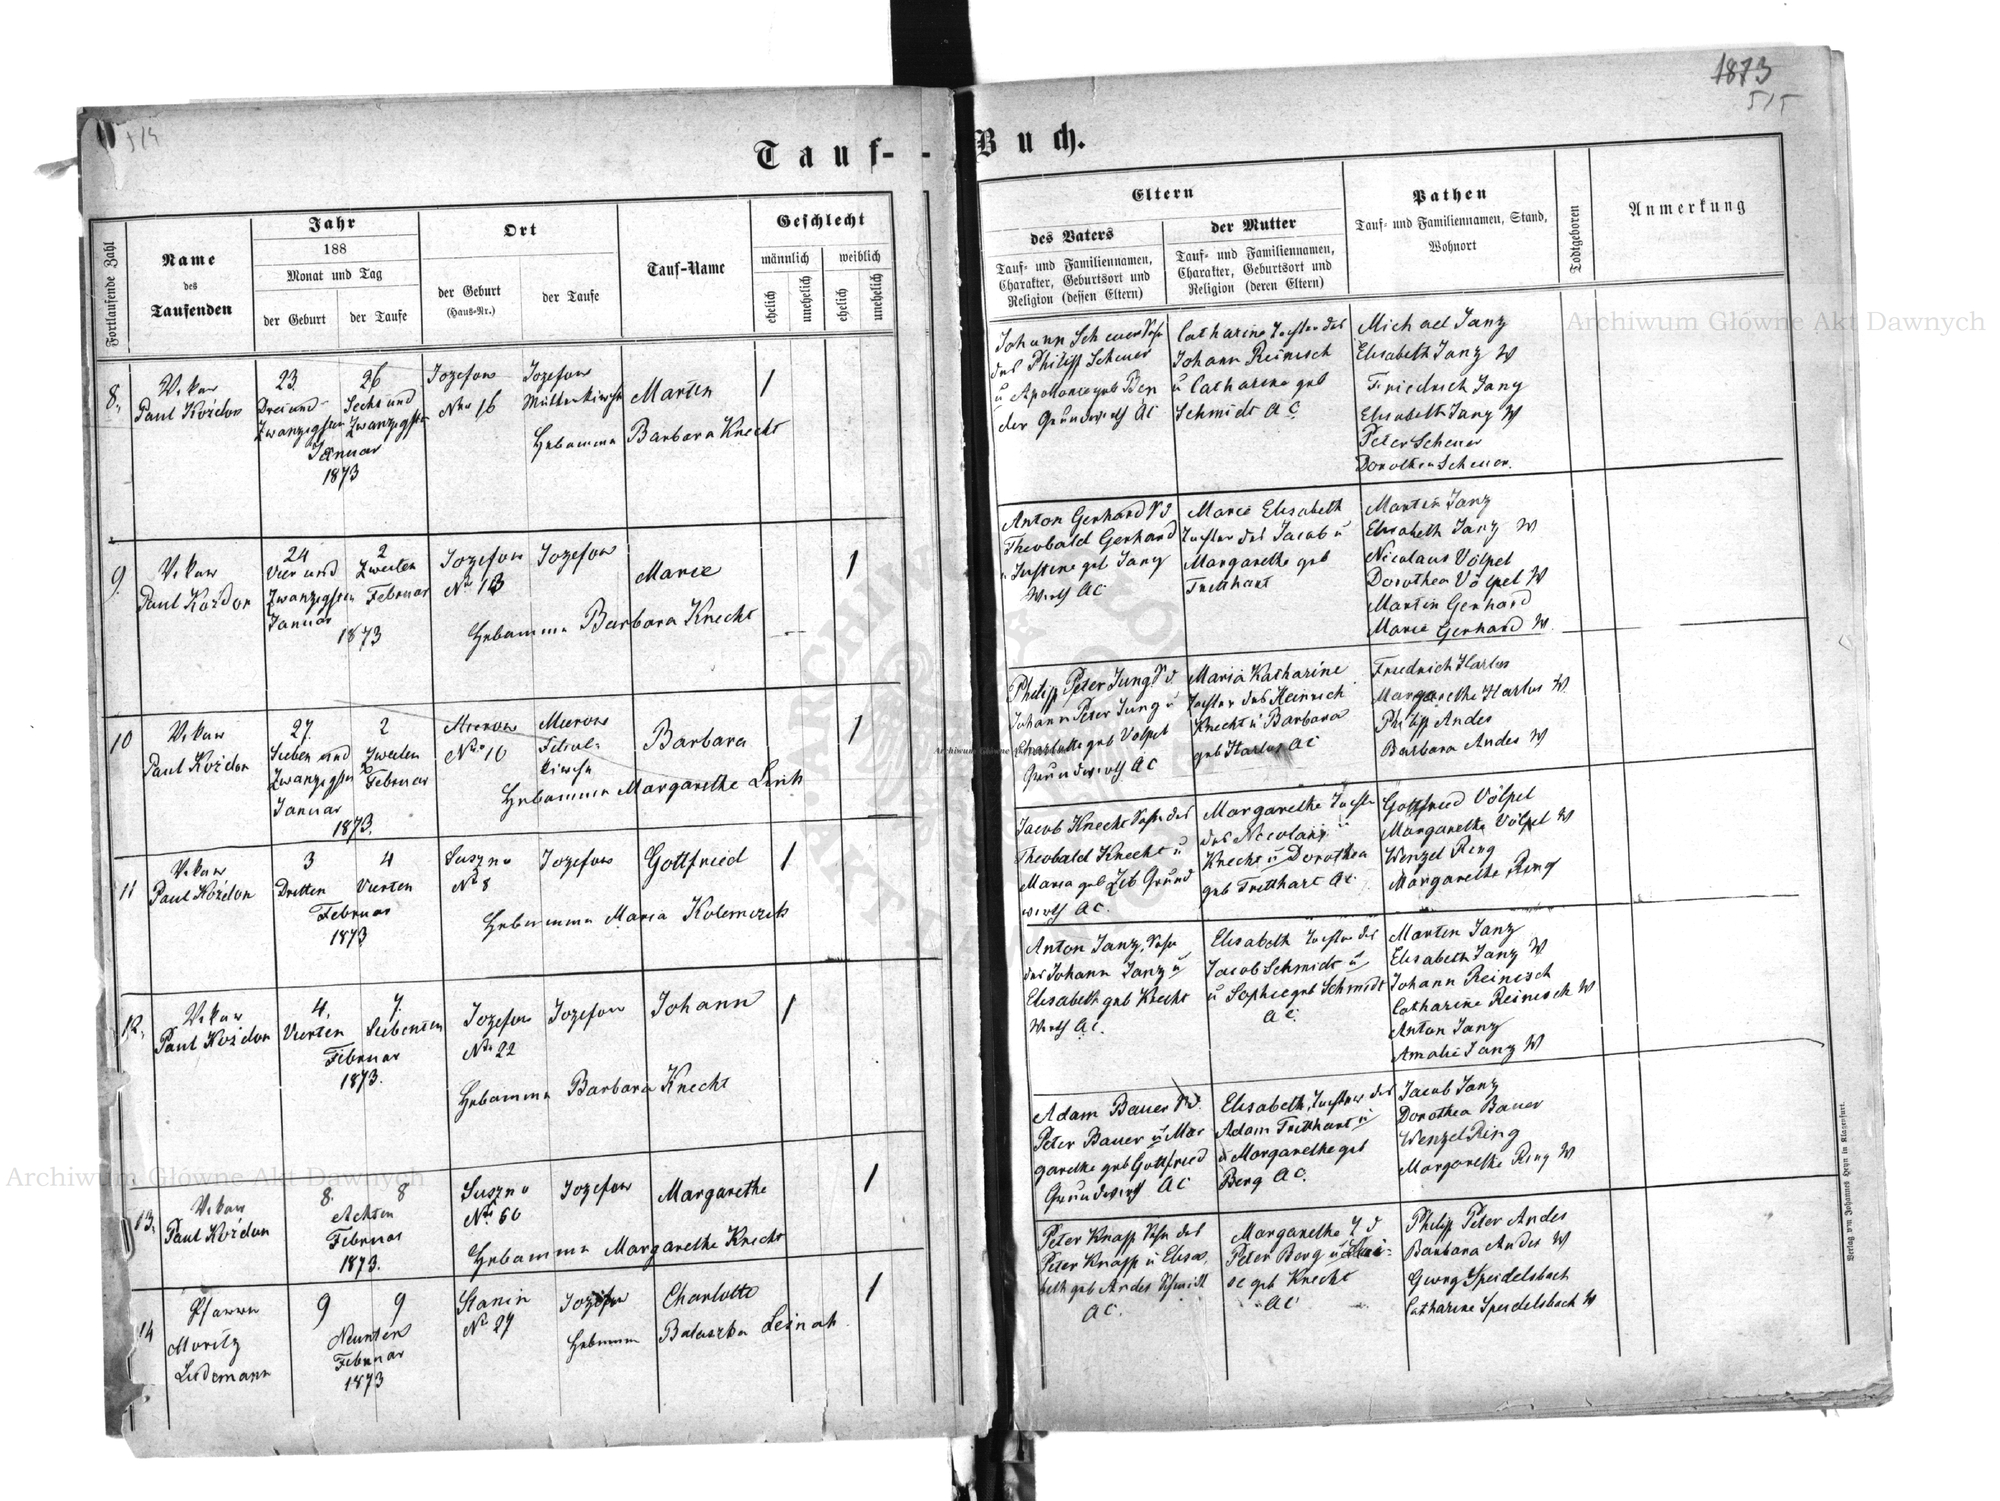 1873
515
514
Tauf-Buch.
Fortlaufende Zahl
Name
des
Taufenden
Jahr
188
Monat und Tag
der Geburt
der Taufe
Ort
der Geburt
(Haus-Nr.)
der Taufe
Tauf-Name
Geschlecht
männlich
weiblich
ehelich
unehelich
ehelich
unehelich
Eltern
des Vaters
Tauf- und Familiennamen,
Charakter, Geburtsort und
Religion (dessen Eltern)
der Mutter
Tauf- und Familiennamen,
Charakter, Geburtsort und
Religion (deren Eltern)
Pathen
Tauf- und Familiennamen, Stand,
Wohnort
Todtgeboren
Anmerkung
8.
Vikar
Paul Koždon
23
Drei und
Zwanzigsten
26
Sechs und
Zwanzigsten
Januar
1873
Jozefow
Nro 16
Jozefow
Mutterkirche
Martin
1
Hebamme Barbara Knecht
Johann Scheuer Sohn
des Philipp Scheuer
u Apolonia geb Ben
der Grundwirth AC
Catharine Tochter des
Johann Reinisch
u Catharine geb
Schmidt A C
Michael Janz
Elisabeth Janz W
Friedrich Janz
Elisabeth Janz W
Peter Scheuer
Dorothea Scheuer.
9.
Vikar
Paul Koždon
24
Vier und
Zwanzigsten
Januar
2
Zweiten
Februar
1873
Jozefow
Nr 13
Jozefow
Marie
1
Hebamme Barbara Knecht
Anton Gerhard S d
Theobald Gerhard
u Justine geb Janz
Wirth AC
Marie Elisabeth
Tochter des Jacob u
Margarethe geb
Tritthart
Martin Janz
Elisabeth Janz W
Nicolaus Völpel
Dorothea Völpel W
Martin Gerhard
Marie Gerhard W.
10
Vikar
Paul Koždon
27.
Sieben und
Zwanzigsten
Januar
2
Zweiten
Februar
1873.
Mierow
Nro 10
Mierow
Filial-
kirche
Barbara
1
Hebamme Margarethe
Philipp Peter Jung S d
Johann Peter Jung u
Charlotte geb Völpel
Grundwirth AC
Maria Katharine
Tochter des Heinrich
Knecht u Barbara
geb Harlos AC
Friedrich Harlos
Margarethe Harlos W
Philipp Andes
Barbara Andes W
11
Vikar
Paul Koždon
3
Dritten
4
Vierten
Februar
1873
Suszno
Nr 8
Jozefow
Gottfried
1
Hebamme Maria
Jacob Knecht Sohn des
Theobald Knecht u
Maria geb Zeb Grund
wirth AC.
Margarethe Tochter
des Nicolaus
Knecht u Dorothea
geb Tritthart AC
Gottfried Völpel
Margarethe Völpel W
Wenzel Ring
Margarethe Ring
12.
Vikar
Paul Koždon
4.
Vierten
7.
Siebenten
Februar
1873.
Jozefow
Nr. 22
Jozefow
Johann
1
Hebamme Barbara Knecht
Anton Janz, Sohn
des Johann Janz u
Elisabeth geb Knecht
Wirth AC.
Elisabeth Tochter des
Jacob Schmidt u
u Sophie geb Schmidt
AC.
Martin Janz
Elisabeth Janz W
Johann Reinisch
Catharine Reinisch W
Anton Janz
Amalie Janz W
13.
Vikar
Paul Koždon
8.
8
Achten
Februar
1873.
Suszno
Nr. 60
Jozefow
Margarethe
1
Hebamme Margarethe Knecht
Adam Bauer S d.
Peter Bauer u Mar
garethe geb Gottfried
Grundwirth AC
Elisabeth, Tochter des
Adam Tritthart u
u Margarethe geb
Berg AC.
Jacob Janz
Dorothea Bauer
Wenzel Ring
Margarethe Ring W
14
Pfarrer
Moritz
Lidemann
9
9
Neunten
Februar
1873
Stanin
Nr 27
Jozefow
Charlotte
1
Hebamme
Peter Knapp Sohn des
Peter Knapp u Elisa,
beth geb Andes Schmidt
AC.
Margarethe T d
Peter Berg u Lui-
se geb Knecht
AC
Philipp Peter Andes
Barbara Andes W
Georg Speidelsbach
Catharine Speidelsbach W
Verlag von Johannes Heyn in Klagenfurt.
Archiwum Główne Akt Dawnych
Archiwum Główne Akt Dawnych